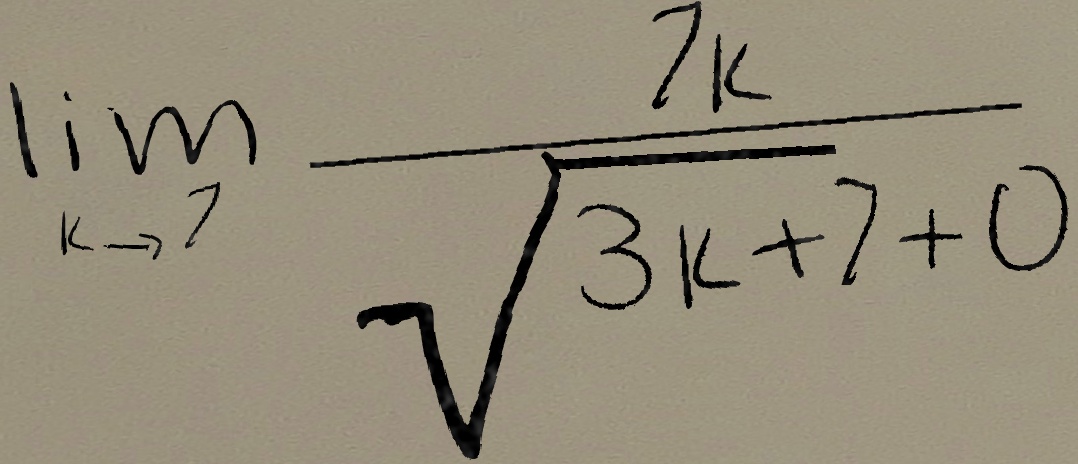 \lim_{k \to 7} \frac{7k}{\sqrt{3k+7}+0}